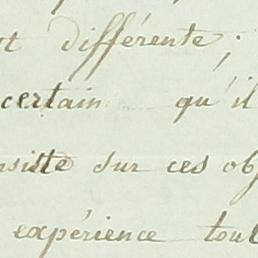 différente;
certain qu'il
insiste sur ces obj
expérience tout